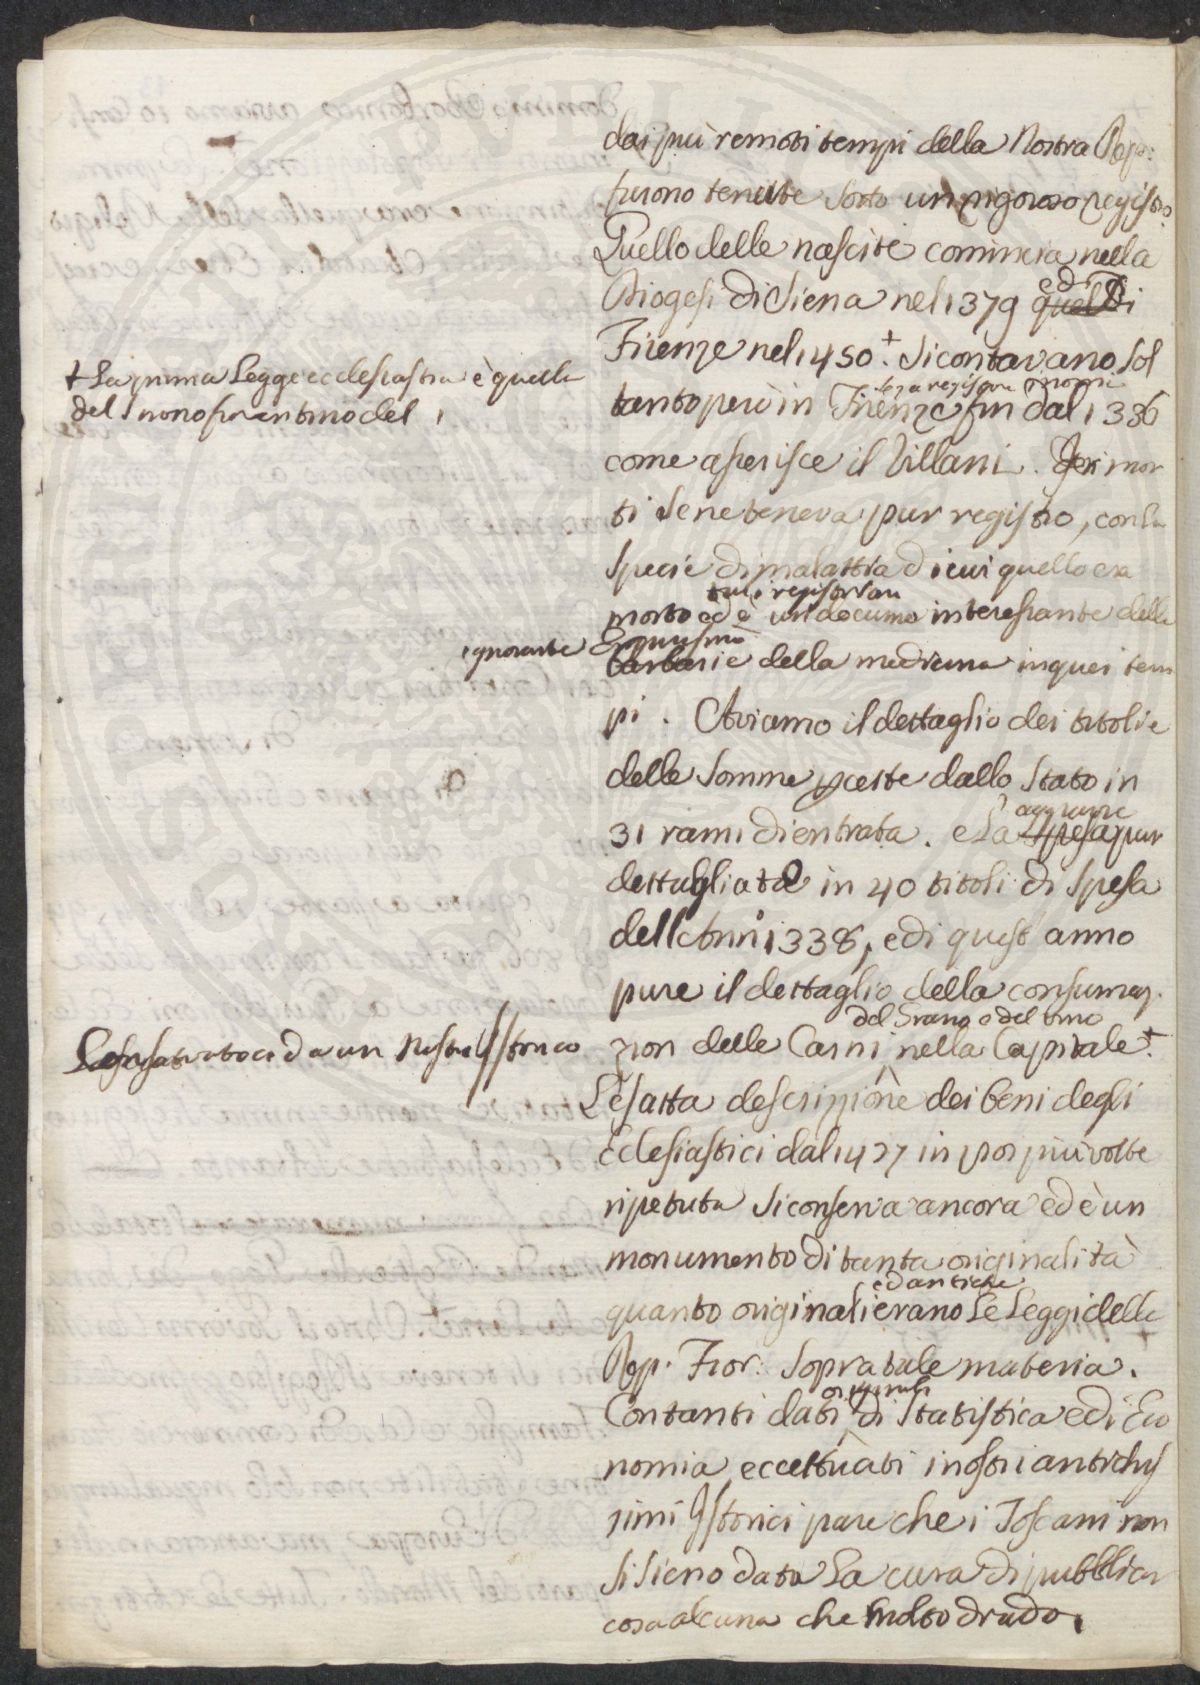 dai più remoti tempi della Nostra Rep:
furono tenute sotto un rigoroso registro.
Quello delle nascite comincia nella
Diogesi di Siena nel 1379 quel di
ed a
Firenze nel 1450.+ Si contavano sol
senza registrare i nomi
tanto però in Firenze fin dal 1336
+ La prima Legge ecclesiastica è quella
del Sinono fiorentino del 1
come asserisce il Villani. Dei mor
ti se ne teneva pur registro, con la
specie di malattia di cui quello era
morto ed è un docum. interessante della
ignorante Empirismo
barbarie della medicina in quei tem
pi. Aviamo il dettaglio dei titoli e
delle somme pcette dallo Stato in
31 rami di entrata. e la spesa pur
dettagliata in 40 titoli di spesa
dell'Ann. 1338, e di quest anno
pure il dettaglio della consumaz.
del Grano e del vino
zion delle Carni nella Capitale.+
da un nostro Istorico
L'esatta descrizione dei beni degli
Eclesiastici dal 1427 in poi più volte
ripetuta si conserva ancora ed è un
monumento di tanta originalità
ed antiche
quanto originali erano le Leggi della
Rep. Fior: sopra tale materia.
originali
Con tanti dati di Statistica e di Eco
nomia eccettuati i nostri antichis
simi Istorici pare che i Toscani non
si sieno data la cura di pubblicar
cosa alcuna che molto di rado.